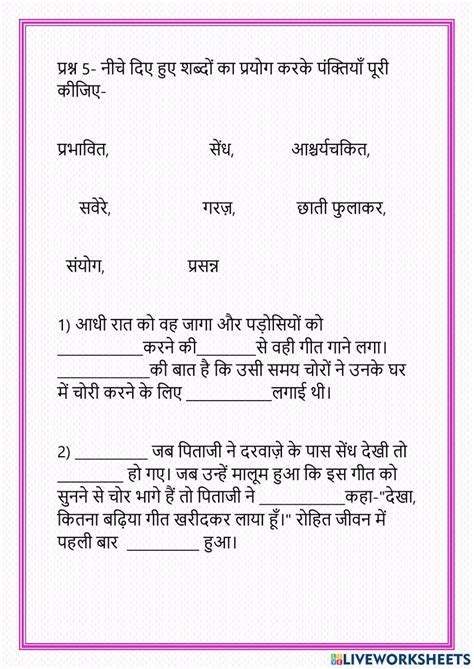 प्रश्न 5- नीचे दिए हुए शब्दों का प्रयोग करके पंक्तियाँ पूरी
कीजिए-
प्रभावित, सेंध, आश्चर्यचकित,
सवेरे, गरज़, छाती फुलाकर,
संयोग, प्रसन्न
1) आधी रात को वह जागा और पड़ोसियों को
___________करने की________से वही गीत गाने लगा।
____________की बात है कि उसी समय चोरों ने उनके घर
में चोरी करने के लिए ___________लगाई थी।
2) __________ जब पिताजी ने दरवाज़े के पास सेंध देखी तो
_________ हो गए। जब उन्हें मालूम हुआ कि इस गीत को
सुनने से चोर भागे हैं तो पिताजी ने ___________कहा-"देखा,
कितना बढ़िया गीत खरीदकर लाया हूँ।" रोहित जीवन में
पहली बार __________ हुआ।
LIVEWORKSHEETS